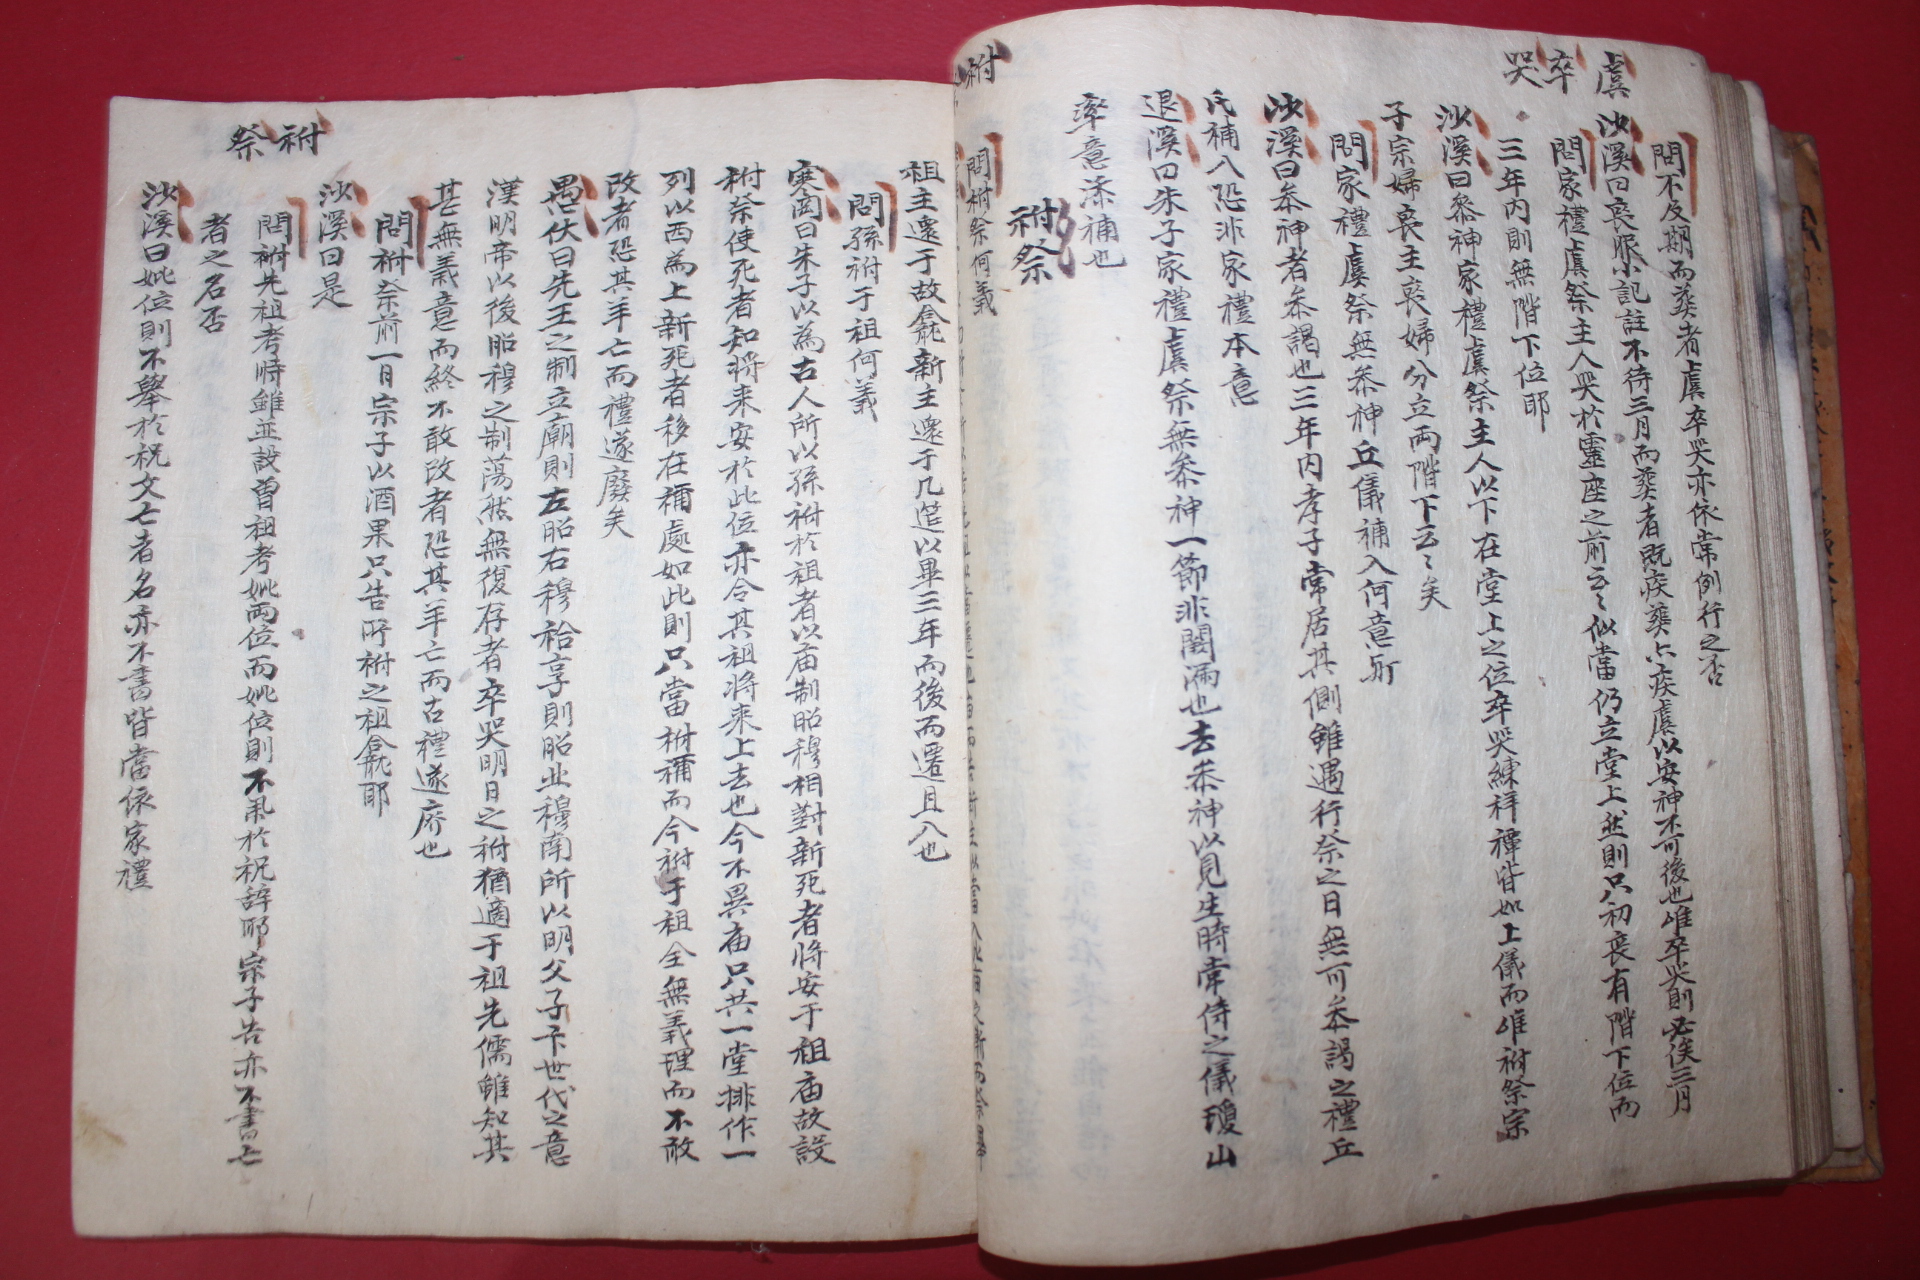 虞
卒
哭
問不及期而葬者虞卒哭亦依常例行之否
沙溪曰喪服小記註不待三月而葬者既疾葬亦疾虞以安神不可後也唯卒哭則必俟三月
問家禮虞祭主人哭於靈座之前云〻似當仍立堂上然則只初喪有階下位而
三年内則無階下位耶
沙溪曰叅神家禮虞祭主人以下在堂上之位卒哭練祥禫皆如上儀而唯祔祭宗
子宗婦喪主喪婦分立兩階下云〻矣
問家禮虞祭無叅神丘儀補入何意耶
沙溪曰叅神者叅謁也三年内孝子常居其側雖遇行祭之日無可叅謁之禮丘
氏補入恐非家禮本意
退溪曰朱子家禮虞祭無叅神一節非闕漏也去叅神以見生時常侍之儀瓊山
率意添補也
祔祭
祔
問祔祭何義
祔祭
祖主還于故龕新主還于几筵以畢三年而後而遷且入也
問孫祔于祖何義
寒岡曰朱子以為古人所以孫祔於祖者以庙制昭穆相對新死者將安于祖庙故設
祔祭使死者知將来安於此位亦令其祖將来上去也今不異庙只共一堂排作一
列以西為上新死者移在禰處如此則只當祔禰而今祔于祖全無義理而不敢
改者恐其羊亡而禮遂廢矣
愚伏曰先王之制立廟則左昭右穆祫享則昭北穆南所以明父子下世代之意
漢明帝以後昭穆之制蕩然無復存者卒哭明日之祔猶適于祖先儒雖知其
甚無義意而終不敢改者恐其羊亡而古禮遂廢也
問祔祭前一日宗子以酒果只告所祔之祖龕耶
沙溪曰是
問祔先祖考時雖並設曽祖考妣兩位而妣位則不䉼於祝辞耶宗子告亦不書亡
者之名否
沙溪曰妣位則不舉於祝文亡者名亦不書皆當依家禮